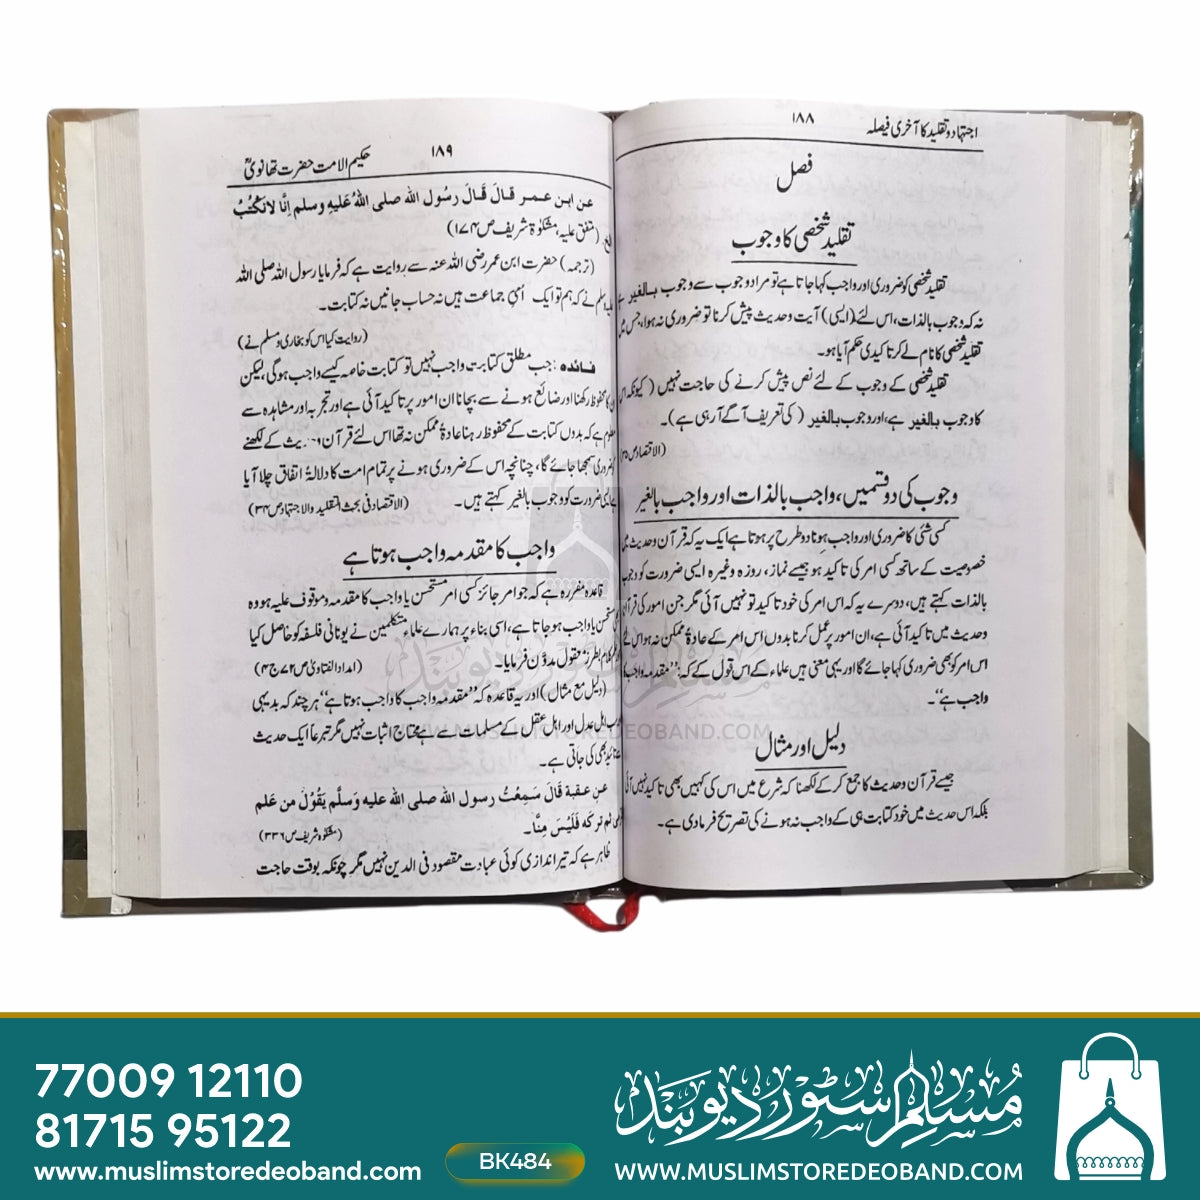 اجتہاد و تقلید کا آخری فیصلہ
۱۸۸
فصل
تقلید شخصی کا وجوب
تقلید شخصی کو ضروری اور واجب کہا جاتا ہے تو مراد وجوب سے وجوب بالغیر ہے
نہ کہ وجوب بالذات، اس لئے (ایسی) آیت و حدیث پیش کرنا تو ضروری نہ ہوا، جس میں
تقلید شخصی کا نام لے کر تاکیدی حکم آیا ہو۔
تقلید شخصی کے وجوب کے لئے نص پیش کرنے کی حاجت نہیں (کیونکہ اس
کا وجوب بالغیر ہے، اور وجوب بالغیر (کی تعریف آگے آرہی ہے)۔
(الاقتصاد ص
وجوب کی دو قسمیں، واجب بالذات اور واجب بالغیر
کسی شئی کا ضروری اور واجب ہونا دو طرح پر ہوتا ہے ایک یہ کہ قرآن و حدیث میں
خصوصیت کے ساتھ کسی امر کی تاکید ہو جیسے نماز، روزہ وغیرہ ایسی ضرورت کو وجوب
بالذات کہتے ہیں، دوسرے یہ کہ اس امر کی خود تاکید تو نہیں آئی مگر جن امور کی قرآن
و حدیث میں تاکید آئی ہے، ان امور پر عمل کرنا بدوں اس امر کے عادۃً ممکن نہ ہو اس لئے
اس امر کو بھی ضروری کہا جائے گا اور یہی معنی ہیں علماء کے اس قول کے کہ: "مقدمہ واجب کا
واجب ہے"۔
دلیل اور مثال
جیسے قرآن و حدیث کا جمع کر کے لکھنا کہ شرع میں اس کی کہیں بھی تاکید نہیں آئی
بلکہ اس حدیث میں خود کتابت ہی کے واجب نہ ہونے کی تصریح فرمادی ہے۔
۱۸۹
حکیم الامت حضرت تھانویؒ
عن ابن عمر قال قَالَ رسُول الله صلى اللهُ عَلَيهِ وسلم إنَّا لانَكْتُبُ
(متفق علیہ، مشکوٰۃ شریف ص ۱۷۴)
(ترجمہ) حضرت ابن عمر رضی اللہ عنہ سے روایت ہے کہ فرمایا رسول اللہ صلی اللہ
علیہ وسلم نے کہ ہم تو ایک اُمّی جماعت ہیں نہ حساب جانیں نہ کتابت۔
(روایت کیا اس کو بخاری و مسلم نے)
فائدہ: جب مطلق کتابت واجب نہیں تو کتابت خاصہ کیسے واجب ہوگی، لیکن
محفوظ رکھنا اور ضائع ہونے سے بچانا ان امور پر تاکید آئی ہے اور تجربہ اور مشاہدہ سے
معلوم ہے کہ بدوں کتابت کے محفوظ رہنا عادۃً ممکن نہ تھا اس لئے قرآن و حدیث کے لکھنے
کو ضروری سمجھا جائے گا، چنانچہ اس کے ضروری ہونے پر تمام امت کا دلالۃً اتفاق چلا آیا
ضرورت کو وجوب بالغیر کہتے ہیں۔ (الاقتصاد فی بحث التقلید والاجتہاد ص ۳۴)
واجب کا مقدمہ واجب ہوتا ہے
قاعدہ مقررہ ہے کہ جو امر جائز کسی امر مستحسن یا واجب کا مقدمہ و موقوف علیہ ہو وہ
مستحسن یا واجب ہو جاتا ہے، اسی بناء پر ہمارے علماء متکلمین نے یونانی فلسفہ کو حاصل کیا
کلام بطرز معقول مدوّن فرمایا۔ (امداد الفتاویٰ ص ۷۲ ج ۴)
(دلیل مع مثال) اور یہ قاعدہ کہ "مقدمہ واجب کا واجب ہوتا ہے" ہر چند کہ بدیہی
اہل عدل اور اہل عقل کے مسلمات سے ہے محتاج اثبات نہیں مگر تبرعاً ایک حدیث
تائید بھی کی جاتی ہے۔
عن عقبة قَالَ سَمِعْتُ رسول الله صلى الله عليه وسَلَّم يَقُوْلُ من عَلم
ثم تركه فَلَيْسَ مِنَّا۔ (مشکوٰۃ شریف ص ۳۳۶)
ظاہر ہے کہ تیراندازی کوئی عبادت مقصود فی الدین نہیں مگر چونکہ بوقت حاجت
مسلم سٹور دیوبند
WWW.MUSLIMSTOREDEOBAND.COM
77009 12110
81715 95122
www.muslimstoredeoband.com
BK484
مسلم سٹور دیوبند
WWW.MUSLIMSTOREDEOBAND.COM